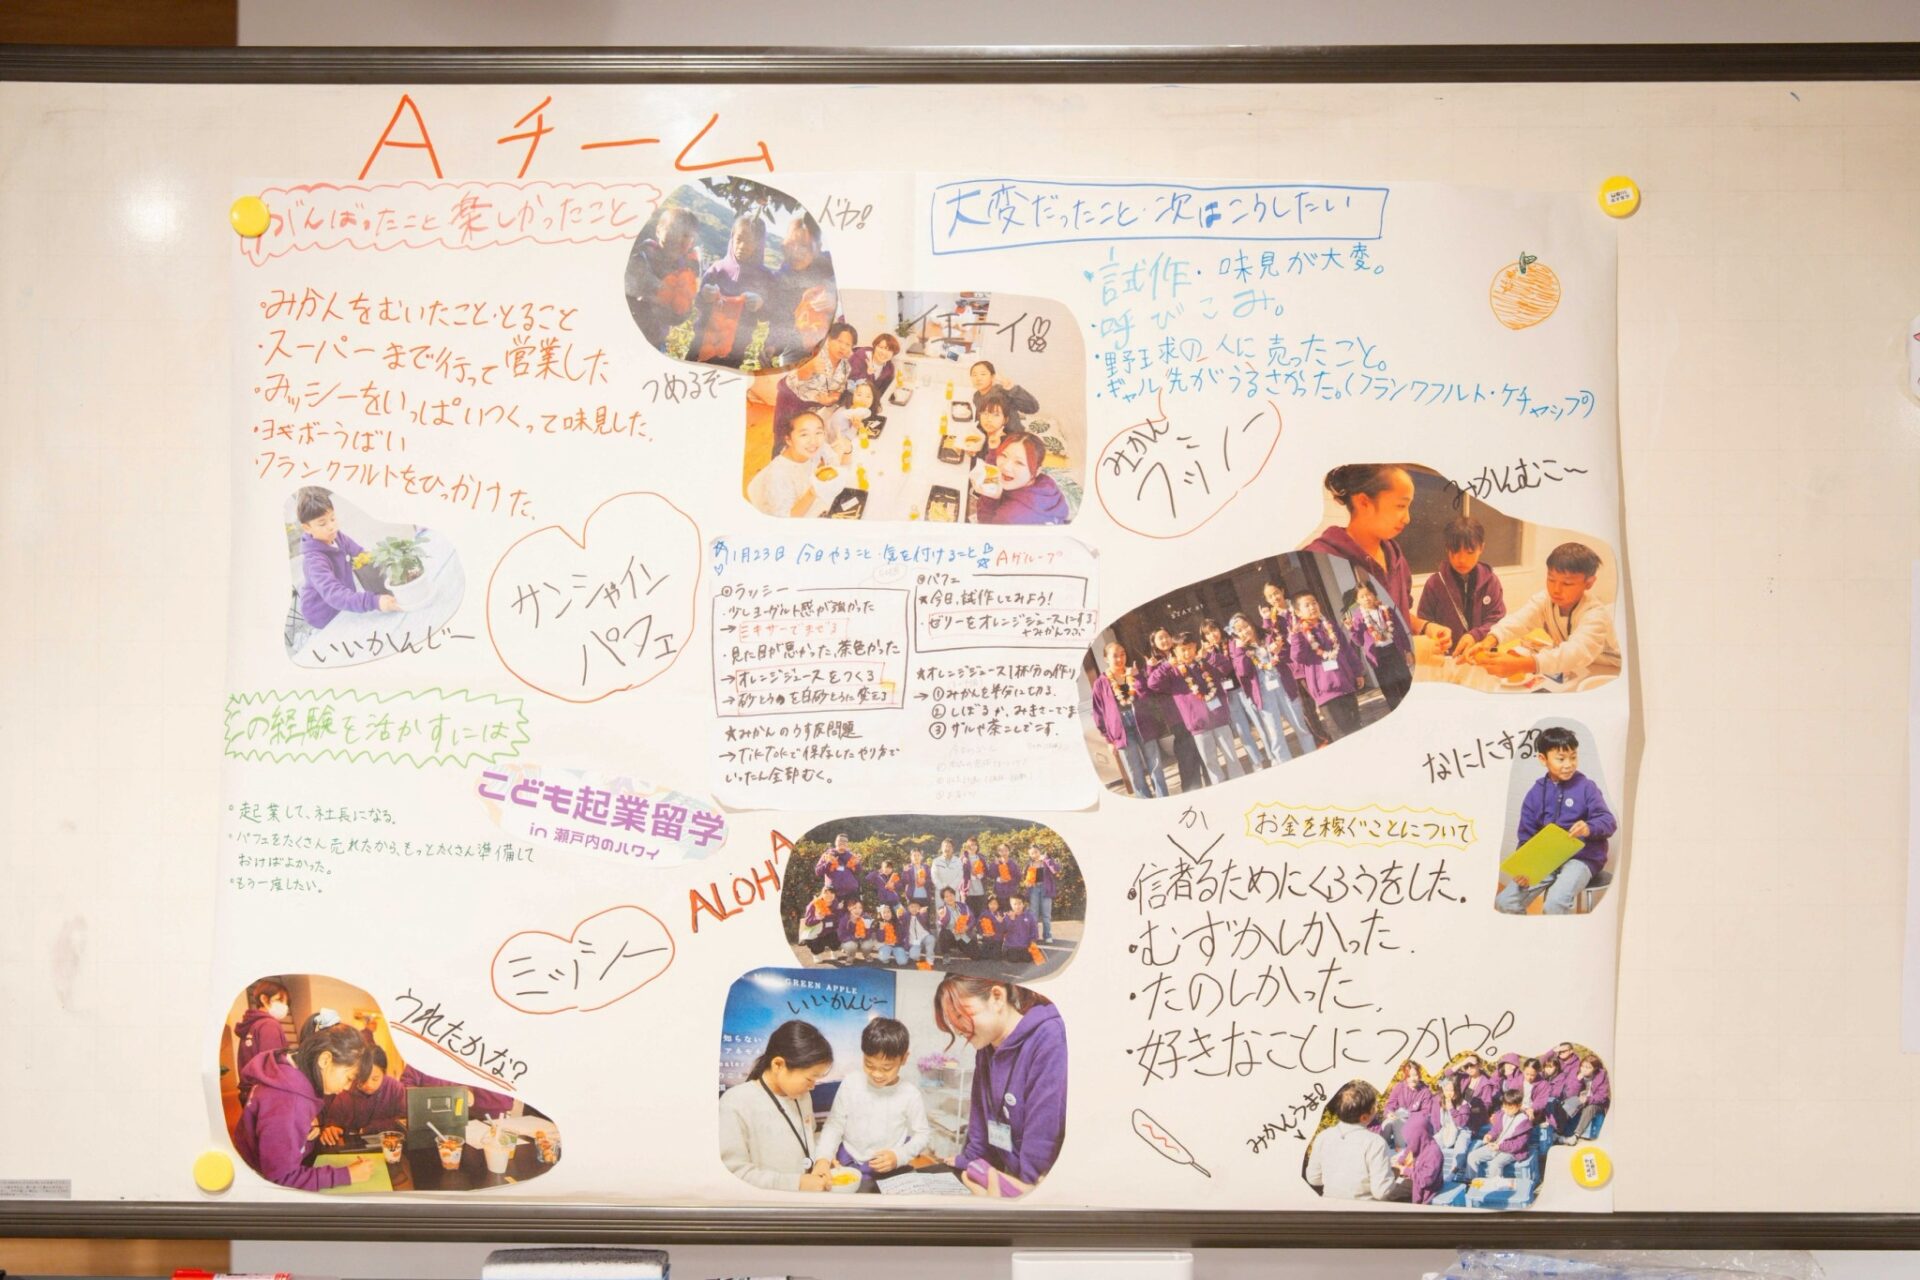 Aチーム
がんばったこと楽しかったこと
・みかんをむいたこと・とること
・スーパーまで行って営業した
・みッシーをいっぱいつくって味見した.
・ヨギボーうばい
・フランクフルトをひっかけた.
つめるぞー
イエーイ
大変だったこと・次はこうしたい
・試作・味見が大変。
・呼びこみ。
・野球の人に売ったこと。
・ギャル先がうるさかった。(フランクフルト・ケチャップ)
みかん
フッシー
みかんむこ〜
いいかんじー
サンシャイン
パフェ
1月23日 今日やること・気を付けること Aグループ
◎ラッシー
・少しヨーグルト感が強かった
→ミキサーでまぜる
・見た目が悪かった、茶色かった
→オレンジジュースをつくる
→砂とうを白砂とうに変える
★みかんのうす皮問題
→TikTokで保存したやり方で
いったん全部むく。
◎パフェ
★今日、試作してみよう!
・ゼリーをオレンジジュースにする
+みかんつぶ
★オレンジジュース1杯分の作り
→①みかんを半分に切る.
②しぼるか、みきさーでま
③ザルや茶こしでこす.
STAY
この経験を活かすには
・起業して、社長になる.
・パフェをたくさん売れたから、もっとたくさん準備して
おけばよかった。
・もう一度したい.
こども起業留学
in 瀬戸内のハワイ
ALOHA
ミッシー
うれたかな?
GREEN APPLE
いいかんじー
なににする?
お金を稼ぐことについて
か
・信者るためにくふうをした.
・むずかしかった.
・たのしかった.
・好きなことにつかウ!
みかんうま!